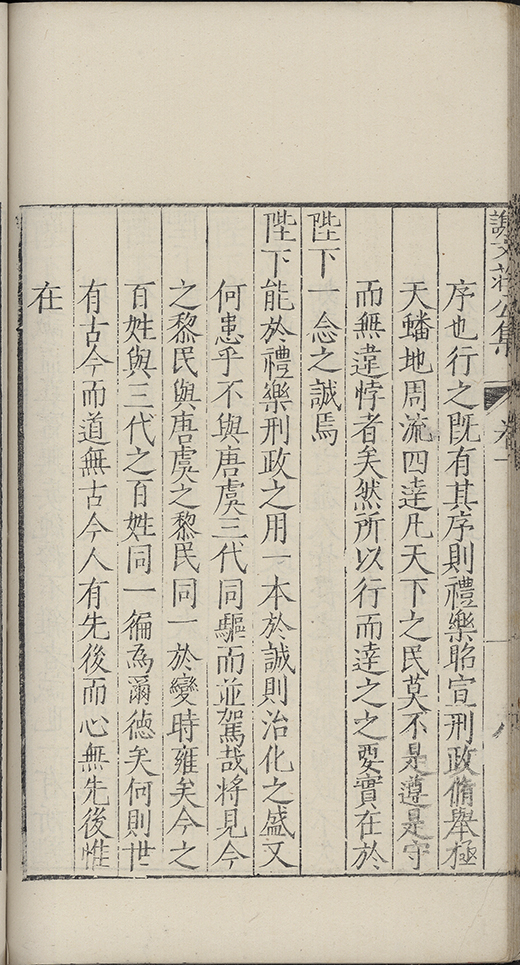 謝文莊公集 卷一
序也行之旣有其序則禮樂昭宣刑政脩舉極
天蟠地周流四達凡天下之民莫不是遵是守
而無違悖者矣然所以行而達之之要實在於
陛下一念之誠焉
陛下能於禮樂刑政之用一本於誠則治化之盛又
何患乎不與唐虞三代同驅而並駕哉將見今
之黎民與唐虞之黎民同一於變時雍矣今之
百姓與三代之百姓同一徧為爾德矣何則世
有古今而道無古今人有先後而心無先後惟
在